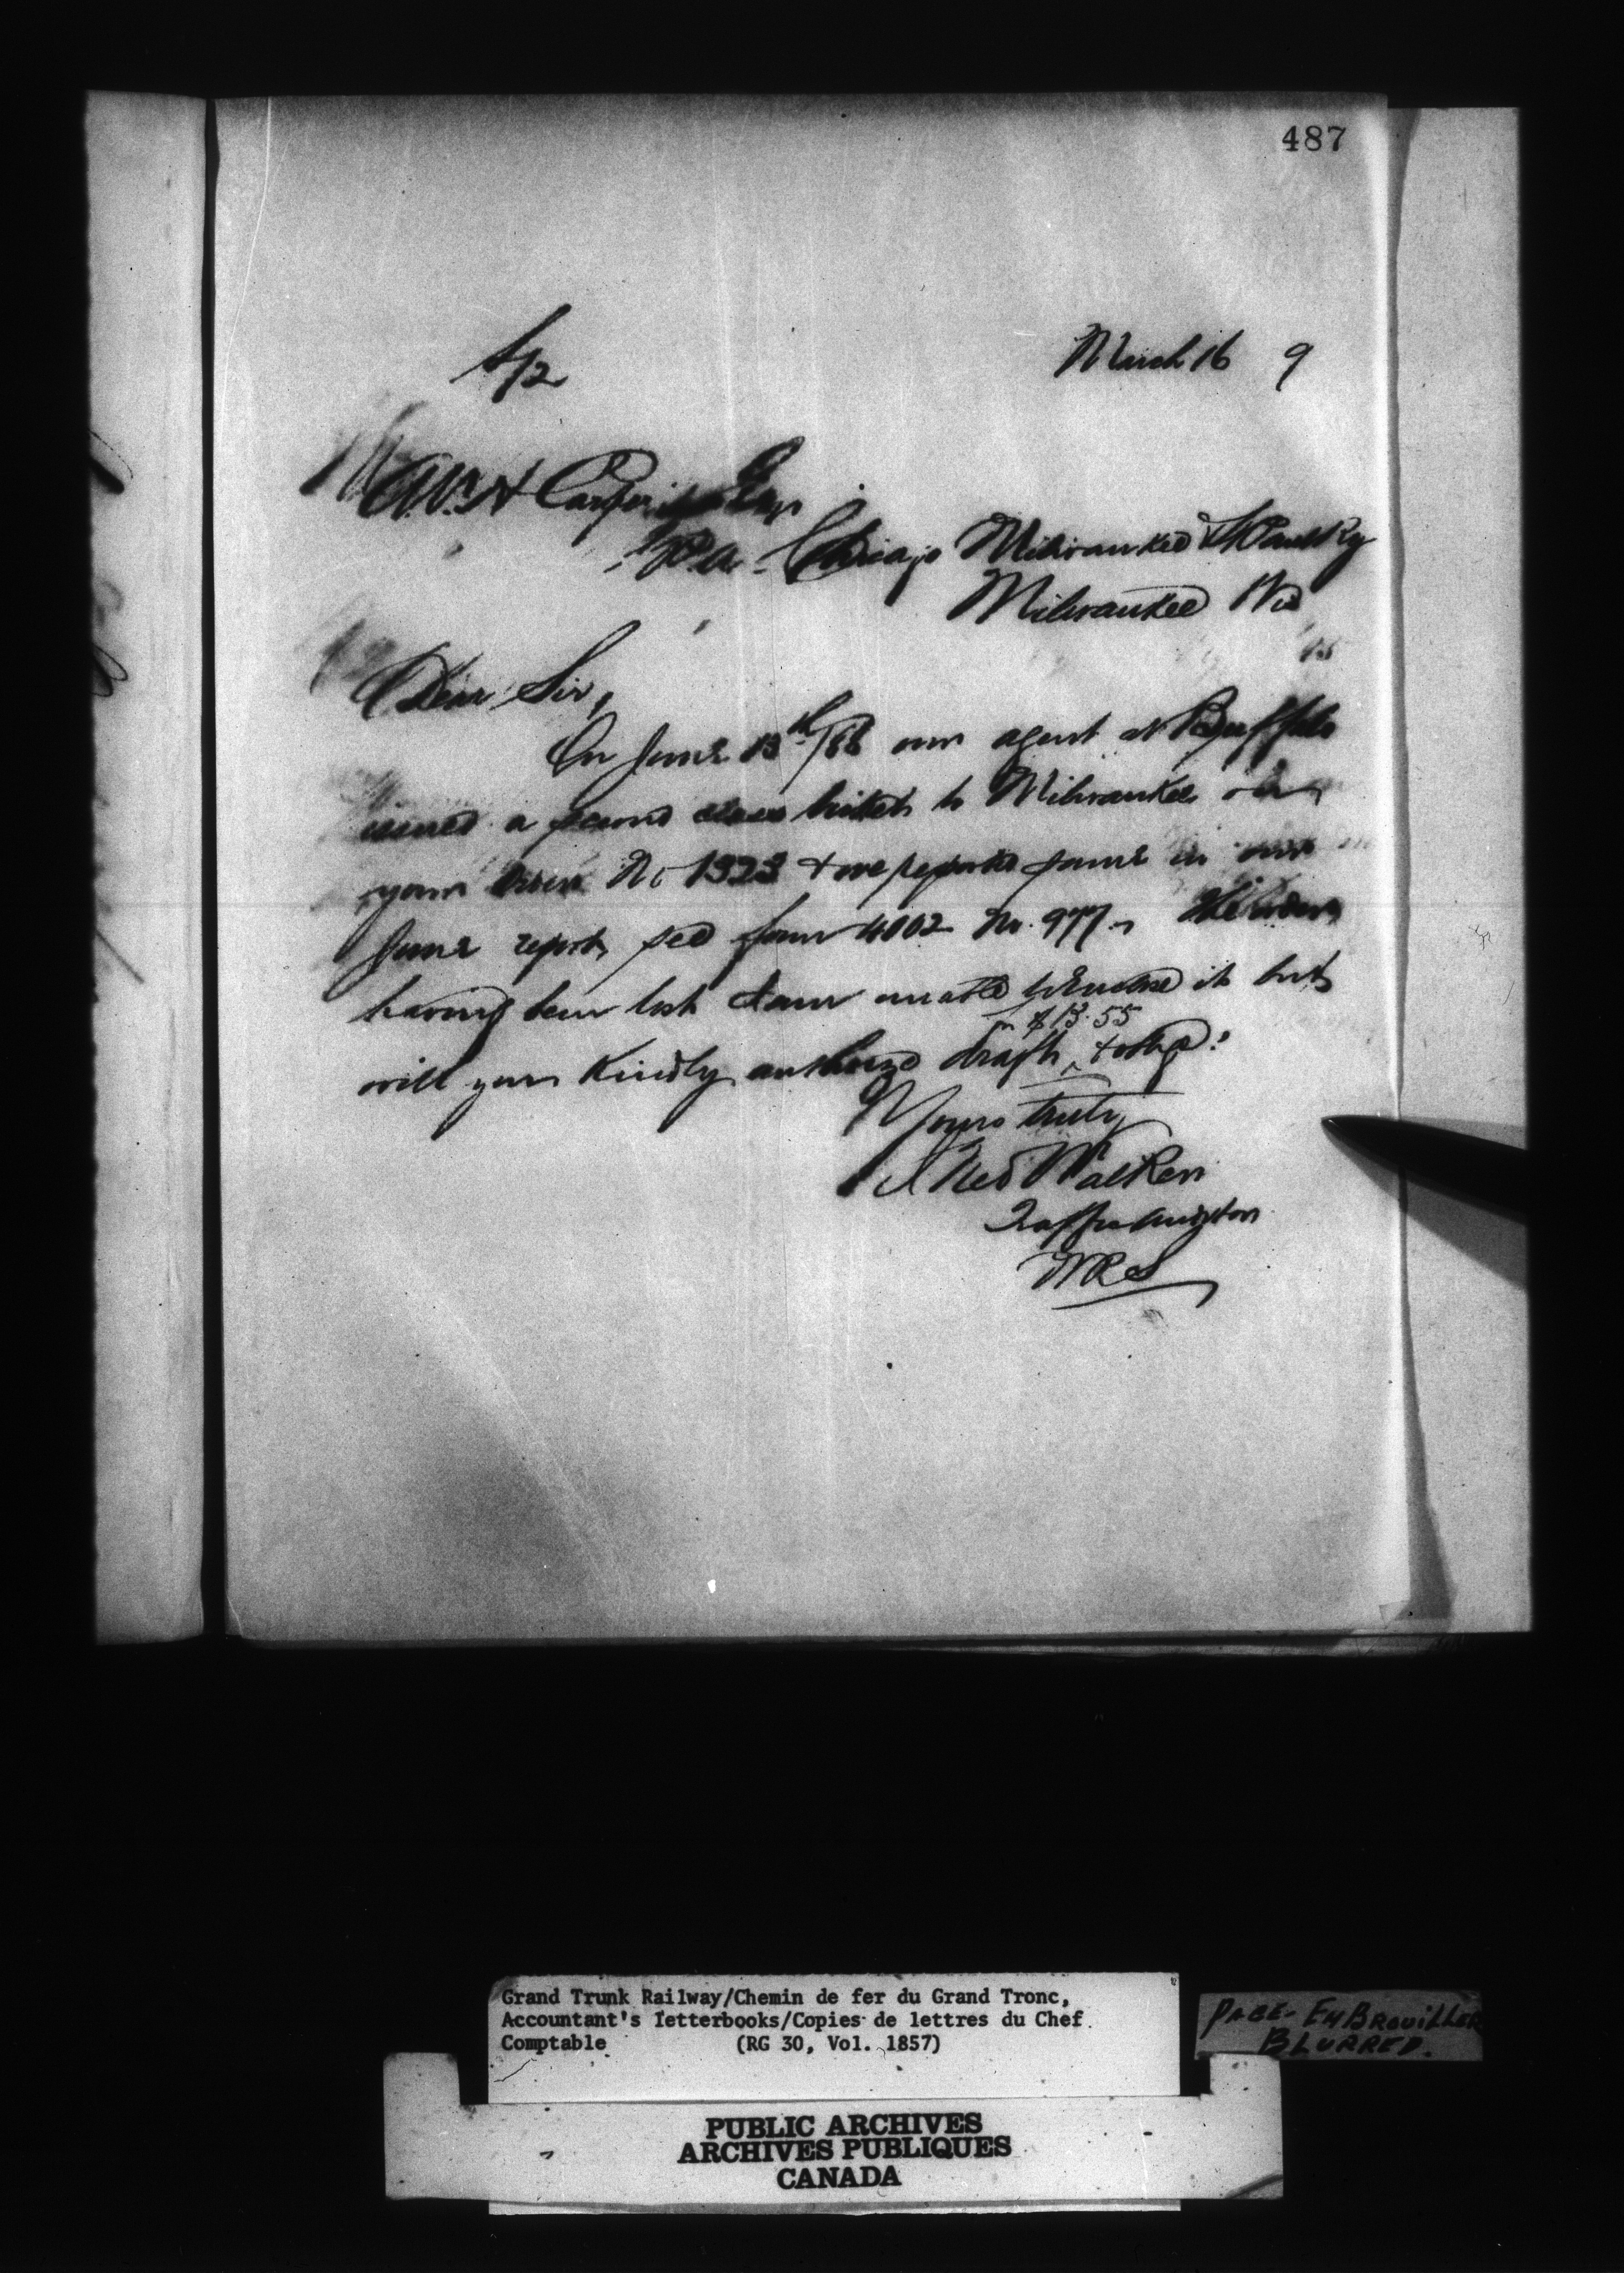 487
S/2
March 16 9
A.V.H. Carpenter Esqr
G.P.A. Chicago Milwaukee & St Paul Ry
Milwaukee Wis
Dear Sir,
On June 13th/88 our agent at Buffalo
issued a second class ticket to Milwaukee on
your order No 1323 & we reported same in our
June report, see form 4002 No. 977.
having been lost I am unable to enclose it but
$13.55
will you kindly authorize draft
Yours truly
Ned Walker
Traffic Auditor
WRS
Grand Trunk Railway/Chemin de fer du Grand Tronc,
Accountant's letterbooks/Copies de lettres du Chef
Comptable (RG 30, Vol. 1857)
PAGE-EMBROUILLER
BLURRED.
PUBLIC ARCHIVES
ARCHIVES PUBLIQUES
CANADA